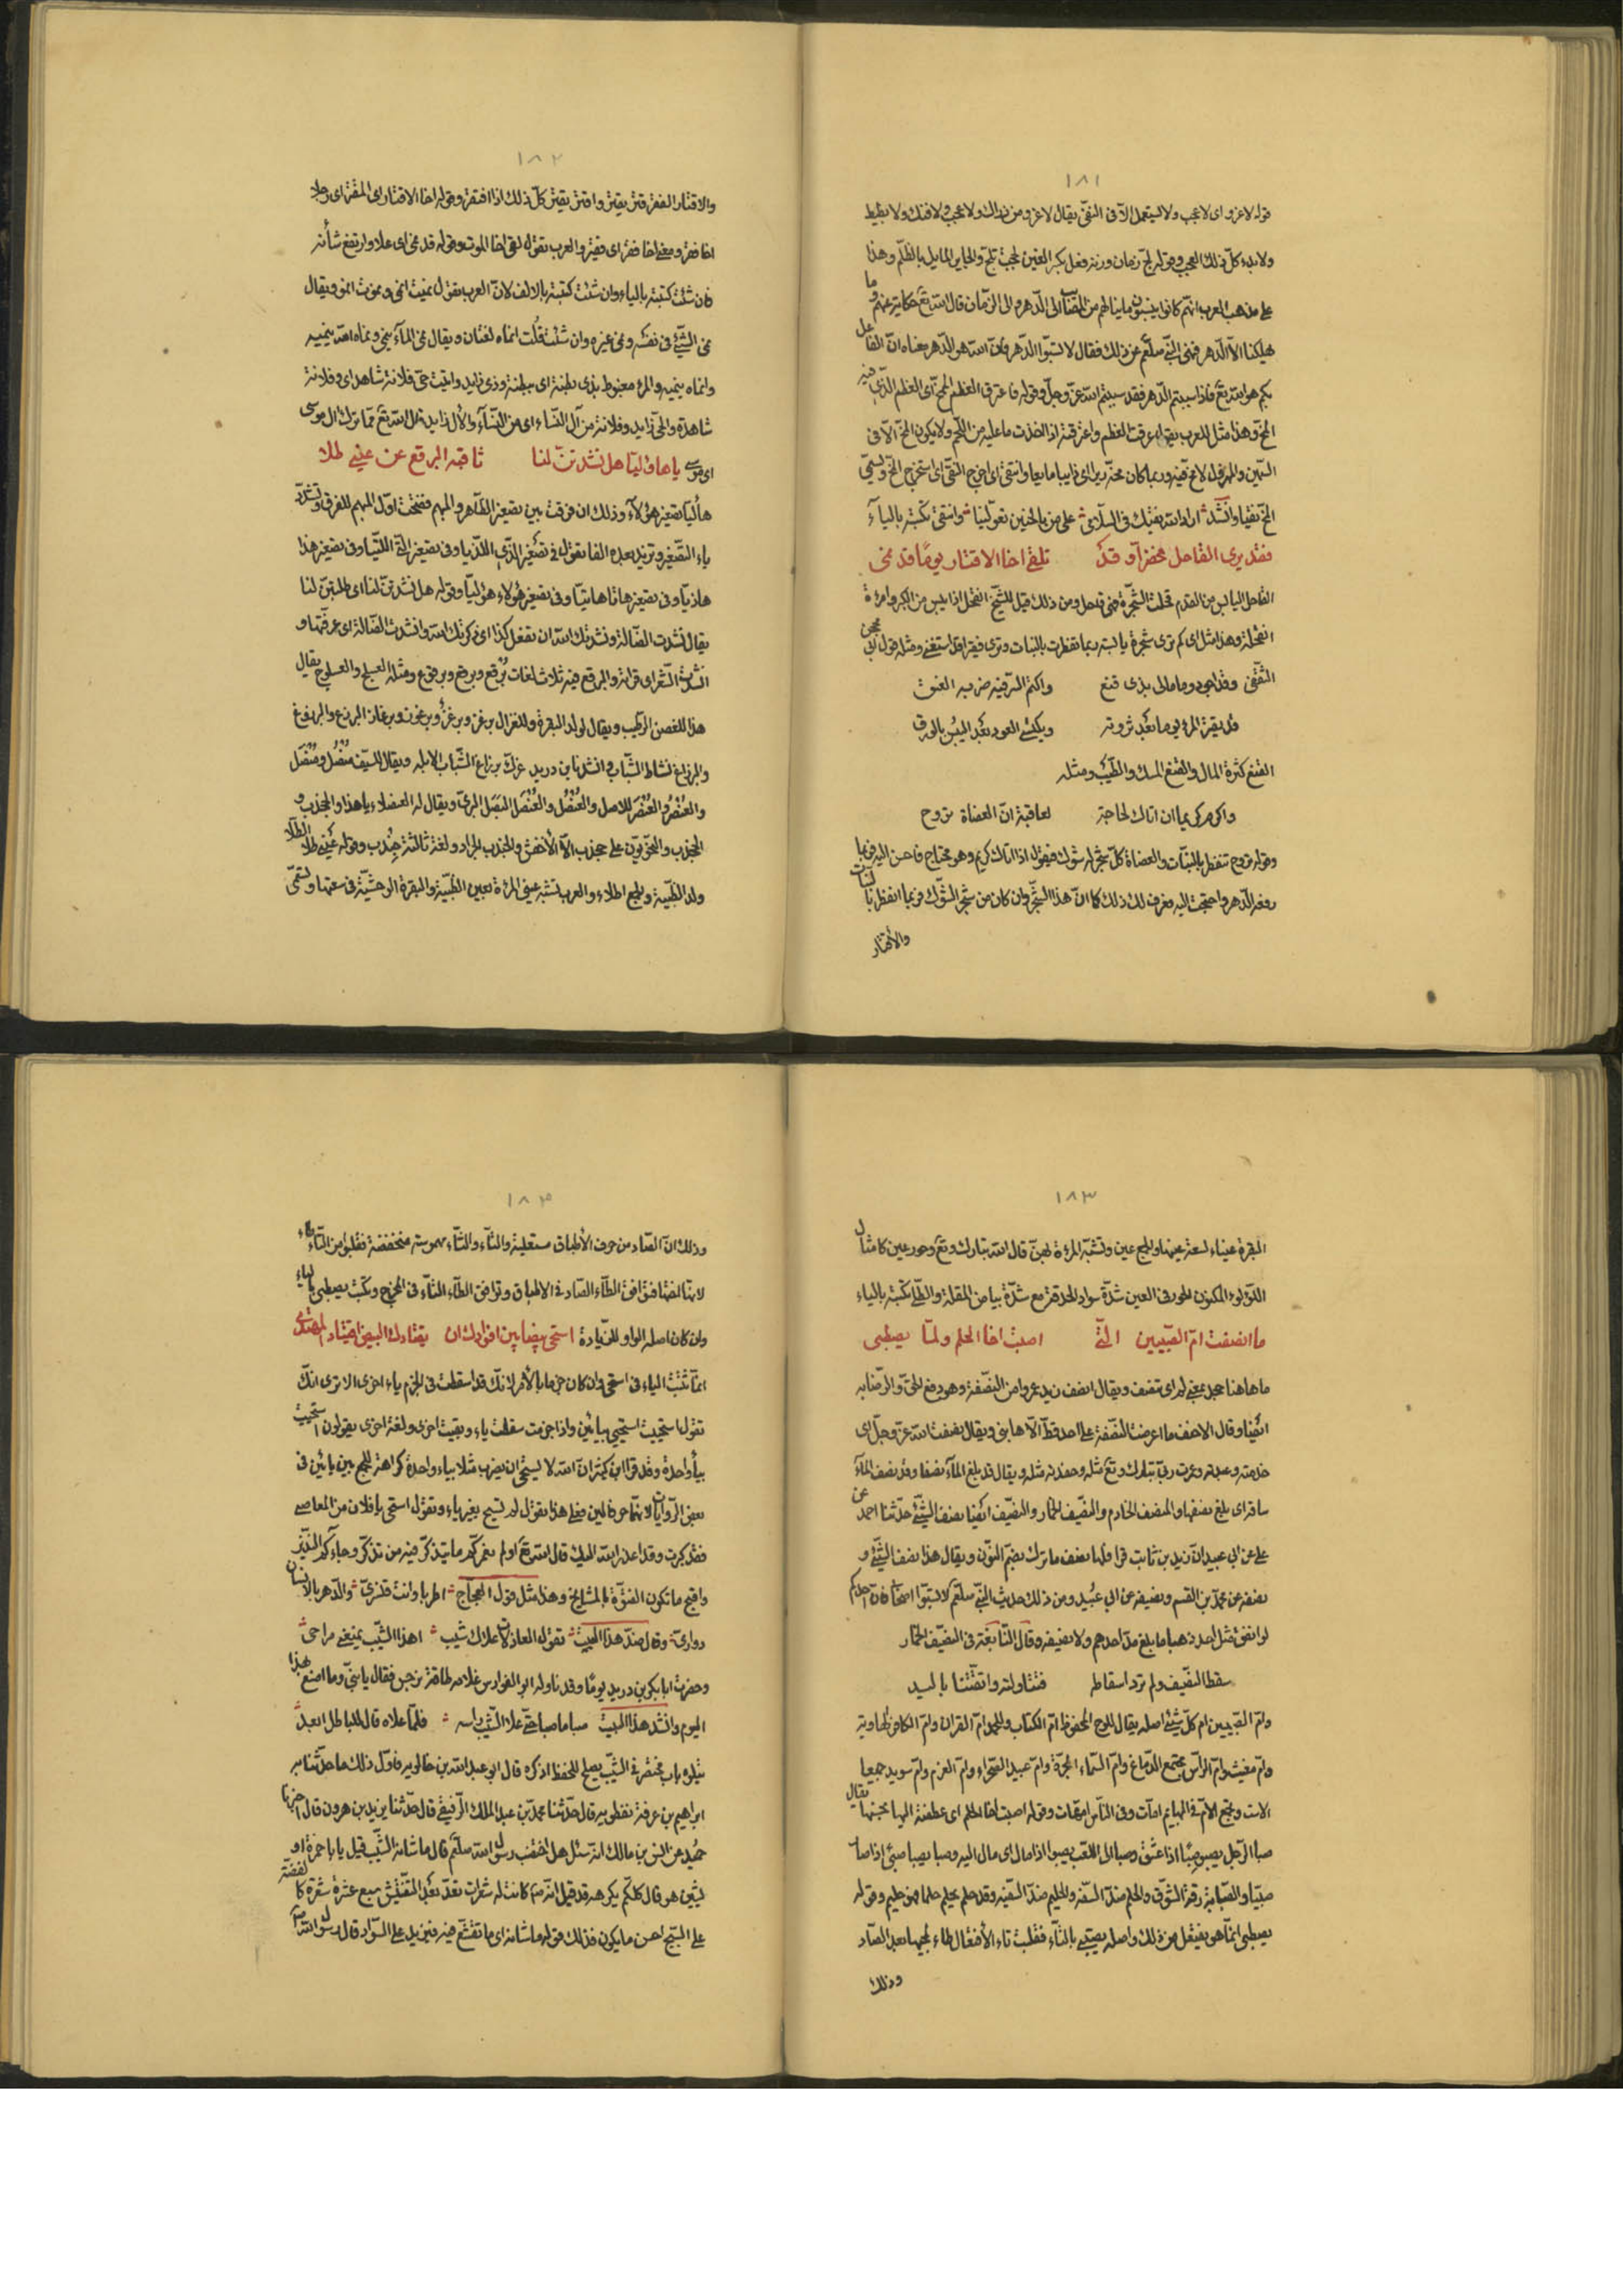 ١٨١
قوله لا غرو اى لا عجب ولا يستعمل الّا فى النفى يقال لا غرو من ذلك ولا عجب ولا
ولا بدء كلّ ذلك العجب وقوله لجّ زمان وزنه فعل بكسر العين لججت تلجّ والجاير المايل بالظلم وهذا
على مذهب العرب انّهم كانوا ينسبون ما ينالهم من المصائب الى الدّهر والى الزمان قال الله تع حكاية عنهم وما
يهلكنا الّا الدّهر فنهى النبىّ صلّعم عن ذلك فقال لا تسبّوا الدّهر فانّ الله هو الدّهر معناه انّ الفاعل
بكم هو الله تع فاذا سببتم الدّهر فقد سببتم الله عزّ وجلّ وقوله فاعترق العظم الممخّ اى العظم الّذى فيه
المخّ وهذا مثل للعرب يقال عرقت العظم واعترقته اذا اخذت ما عليه من اللّحم ولا يكون المخّ الّا فى
السّمين والمهزول لا مخّ فيه وربما كان مخّه ريرا اى ذايبا مايعا وانتقى اى اخرج النقى اى استخرج المخّ ويسمّى
المخّ نقيا وانشد اراد الله نقيك فى السّلامى على من بالحنين تعوّلينا وانتقى تكتبه بالياء
فقد يرى القاحل مخضرّا وقد تلقى اخا الاقتار يوما قد نمى
القاحل اليابس من القدم قحلت الشّجرة فهى قاحل ومن ذلك قيل للشيخ انقحل اذا يبس من الكبر وامرئة
انقحلة وهذا مثل اى كم ترى شجرة يابسة ربما تفطرت بالنبات وترى فقيرا قد يستغنى ومثله قول ابى محجن
الثّقفى وقد اجود وما مالى بذى فنع واكتم السّرّ فيه ضربة العنق
قد يقتر المرء يوما بعد ثروته ويكتسى العود بعد اليبس بالورق
الفنع كثرة المال والفنع المسك والطّيب ومثله
واكرم كريما ان اتاك لحاجة لعاقبة انّ العضاة تروح
وقوله تروح تنفطر بالنبات والعضاة كلّ شجر له شوك فيقول اذا اتاك كريم وهو محتاج فاحسن اليه فربما
رفعه الدّهر واحتجت اليه فعرف لك ذلك كما انّ هذا الشّجر وان كان من شجر الشّوك فربما انفطر بالنبات
والاقتار
١٨٢
والاقتار الفقر قتر يقتر واقتر يقتر كلّ ذلك اذا افتقر وقوله اخا الاقتار اى المقتر اى رجلا
اخا فقر ومعنى اخا فقر اى فقير والعرب تقول لقى اخا الموت وقوله قد نمى اى علا وارتفع شأنه
فان شئت كتبته بالياء وان شئت كتبته بالالف لانّ العرب تقول نميت انمى ونموت انمو ويقال
نمى الشّيئ فى نفسه ونمى غيره وان شئت قلت انماه لغتان ويقال نمى المآء ينمى ونماه الله ينميه
وانماه ينميه والمرء مغبوط بذى بطنه اى ببطنه وذى زايد واتيت حىّ فلانة شاهد اى وفلانة
شاهدة والحىّ زايد وفلانة من آل النّساء اى من النّساء والآل زايد قال الله تع ممّا ترك آل موسى
اى موسى يا هاؤليّا هل نشدتنّ لنا ثاقبة البرقع عن عينى طلا
هاؤليّا تصغير هؤلآء وذلك ان فرقت بين تصغير الظّاهر والمبهم ففتحت اوّل المبهم للفرق وتشدّد
ياء التّصغير وتزيد بعده الفا تقول فى تصغير الّذى اللّذيا وفى تصغير الّتى اللّتيّا وفى تصغير هذا
هاذيّا وفى تصغير هاتا هاتيّا وفى تصغير هؤلاء هؤليّا وقوله هل نشدتنّ لنا اى طلبتنّ لنا
يقال نشدت الضّالة ونشدتك الله ان تفعل كذا اى ذكرتك الله وانشدت الضّالة اى عرّفتها و
انشدت الشّعر اى قرأته والبرقع فيه ثلاث لغات برقع وبرقع وبرقوع ومثله العسلج والعسلوج يقال
هذا للغصن الرّطيب ويقال لولد البقرة وللغزال برغز وبرغز وبرغوز وبرغاز البرزع والبرزوغ
والبرزاغ نشاط الشّباب وانشدنا ابن دريد عزّك برزاغ الشّباب الابله ويقال للسّيف منصل ومنصل
والعنصر والعنصر للاصل والعنصل والعنصل البصل البرىّ ويقال له العنصلاء يا هذا والجندب و
الجندب والنحويّون على جندب الّا الاخفش والجندب الجراد ولغة ثالثة جندب وقوله عينى طلا الطّلا
ولد الظّبية والجمع اطلاء والعرب تشبّه عينى المرءة بعين الظّبية والبقرة الوحشيّة فى سعتها وتسمّى
١٨٣
البقرة عيناء لسعة عينها والجمع عين وتشبّه المرءة بهنّ قال الله تبارك وتع وحور عين كامثال
اللؤلؤ المكنون الحور فى العين شدّة سواد الحدقة مع شدّة بياض المقلة والطّلى تكتبه بالياء
ما انصفت امّ الصّبيين الّتى اصبت اخا الحلم ولمّا يصطبى
ما هاهنا جحد بمعنى لم اى تنصف ويقال انصف زيد عمروا من النّصفة وهو دفع الحقّ والرّضا به
ايضا وقال الاحنف ما اعرضت النّصفة على احد قطّ الّا هابنى ويقال نصفت الله عزّ وجلّ اى
خدمته وعبدته وعزت ربّى تبارك وتع مثله وحفدته مثله ويقال قد بلغ المآء نصفا وقد نصف المآء
ساقه اى بلغ نصفها والمنصف الخادم والنّصيف الخمار والنّصيف ايضا نصف الشّيئ حدّثنا احمد عن
على عن ابى عبيد انّ زيد بن ثابت قرا فلها نصف ما ترك بضمّ النّون ويقال هذا نصف الشّيئ و
نصفه عن محمّد بن القسم ونصيفه عن ابى عبيد ومن ذلك حديث النّبى صلّعم لا تسبّوا اصحابى فانّ احدكم
لو انفق مثل احد ذهبا ما بلغ مدّ احدهم ولا نصيفه وقال النّابغة فى النّصيف الخمار
سقط النّصيف ولم ترد اسقاطه فتناولته واتّقتنا باليد
وامّ الصّبيين امّ كلّ شيئ اصله يقال اللّوح المحفوظ امّ الكتاب والحمد امّ القران وامّ الكافر الهاوية
وامّ مغيث وامّ الرّأس مجتمع الدّماغ وامّ السّماء المجرّة وامّ عبيد الصّحراء وامّ العزم وامّ سويد جميعا
الاست ويجمع الامّ فى البهايم امات وفى النّاس امّهات وقوله اصبت اخا الحلم اى عطفته اليها بحبّها يقال
صبا الرّجل يصبو صبا اذا عشق وصبا الى اللّعب يصبو اذا مال اى مال اليه وصبا يصبا صبئ اذا صار
صبيّا والصّبابة رقة الشّوق والحلم ضدّ السّفه والحليم ضدّ السّفيه وقد حلم يحلم حلما فهو حليم وقوله
يصطبى انّما هو يفتعل من ذلك واصله يصتبى بالتّاء فقلبت تاء الافتعال طاء لمجيئها بعد الصّاد
وذلك
١٨٤
وذلك انّ الصّاد من حروف الاطباق مستعلية والتّاء والثّاء مهموسة منخفضة فقلبوا من التّاء طاء
لانّها فوافق الطّاء الصّاد فى الاطباق وتوافق الطّاء التّاء فى المخرج وتكتب يصطبى بالياء
وان كان اصله الواو للزّيادة استحى بيضا بين افوادك ان يقتادك البيض اقتياد المهتدى
انّما تثبت الياء فى استحى وان كان جزما بالامر لانّك قد اسقطت فى الجزم ياء اخرى الا ترى انّك
تقول استحييت استحيى بيائين واذا جزمت سقطت ياء وبقيت اخرى ولغة اخرى يقولون استحيت
بيأ واحدة وقد قرا ابن كثير انّ الله لا يستحى ان يضرب مثلا بياء واحدة كراهة للجمع بين يائين فى
بعض الرّوايات لانّهما حرفا لين فعلى هذا تقول لم تستح بغير ياء وتقول استحى يا فلان من المعاصى
فقد كبرت وقد اعذر الله اليك قال الله تع اولم نعمّركم ما يتذكّر فيه من تذكّر وجاءكم النّذير
واقبح ما تكون الصّبوة بالمشايخ وهذا مثل قول العجّاج اطربا وانت قنّسرىّ والدّهر بالانسان
دوّارىّ وقال ضدّ هذا البيت تقول العاذلات علاك شيب اهذا الشّيب يمنعنى مراحى
وحضرت ابا بكر بن دريد يوما وقد ناوله ابو الفوارس غلامه طاقة نرجس فقال يا بنىّ وما اصنع بهذا
اليوم وانشد هذا البيت صبا ما صبا حتّى علا الشّيب راسه فلمّا علاه قال للباطل ابعد
يتلوه باب مختصر فى الشّيب يصلح للحفظ اذكره قال ابو عبد الله بن خالويه فاوّل ذلك ما حدّثنا به
ابراهيم بن عرفة نفطويه قال حدّثنا محمّد بن عبد الملك الدّقيقى قال حدّثنا يزيد بن هرون قال اخبرنا
حميد عن انس بن مالك انّه سئل هل اختضب رسول الله صلّعم قال ما شانه الشّيب قيل يا با حمزة او
شين هو قال كلّكم يكرهه قد قيل انّه كانت له شعرات تعدّ بعد التّفتيش سبع عشرة شعرة كالفضّة
على السّبج احسن ما يكون فذلك قوله ما شانه اى ما تقشّع فيه فيزيد على السّواد قال رسول الله